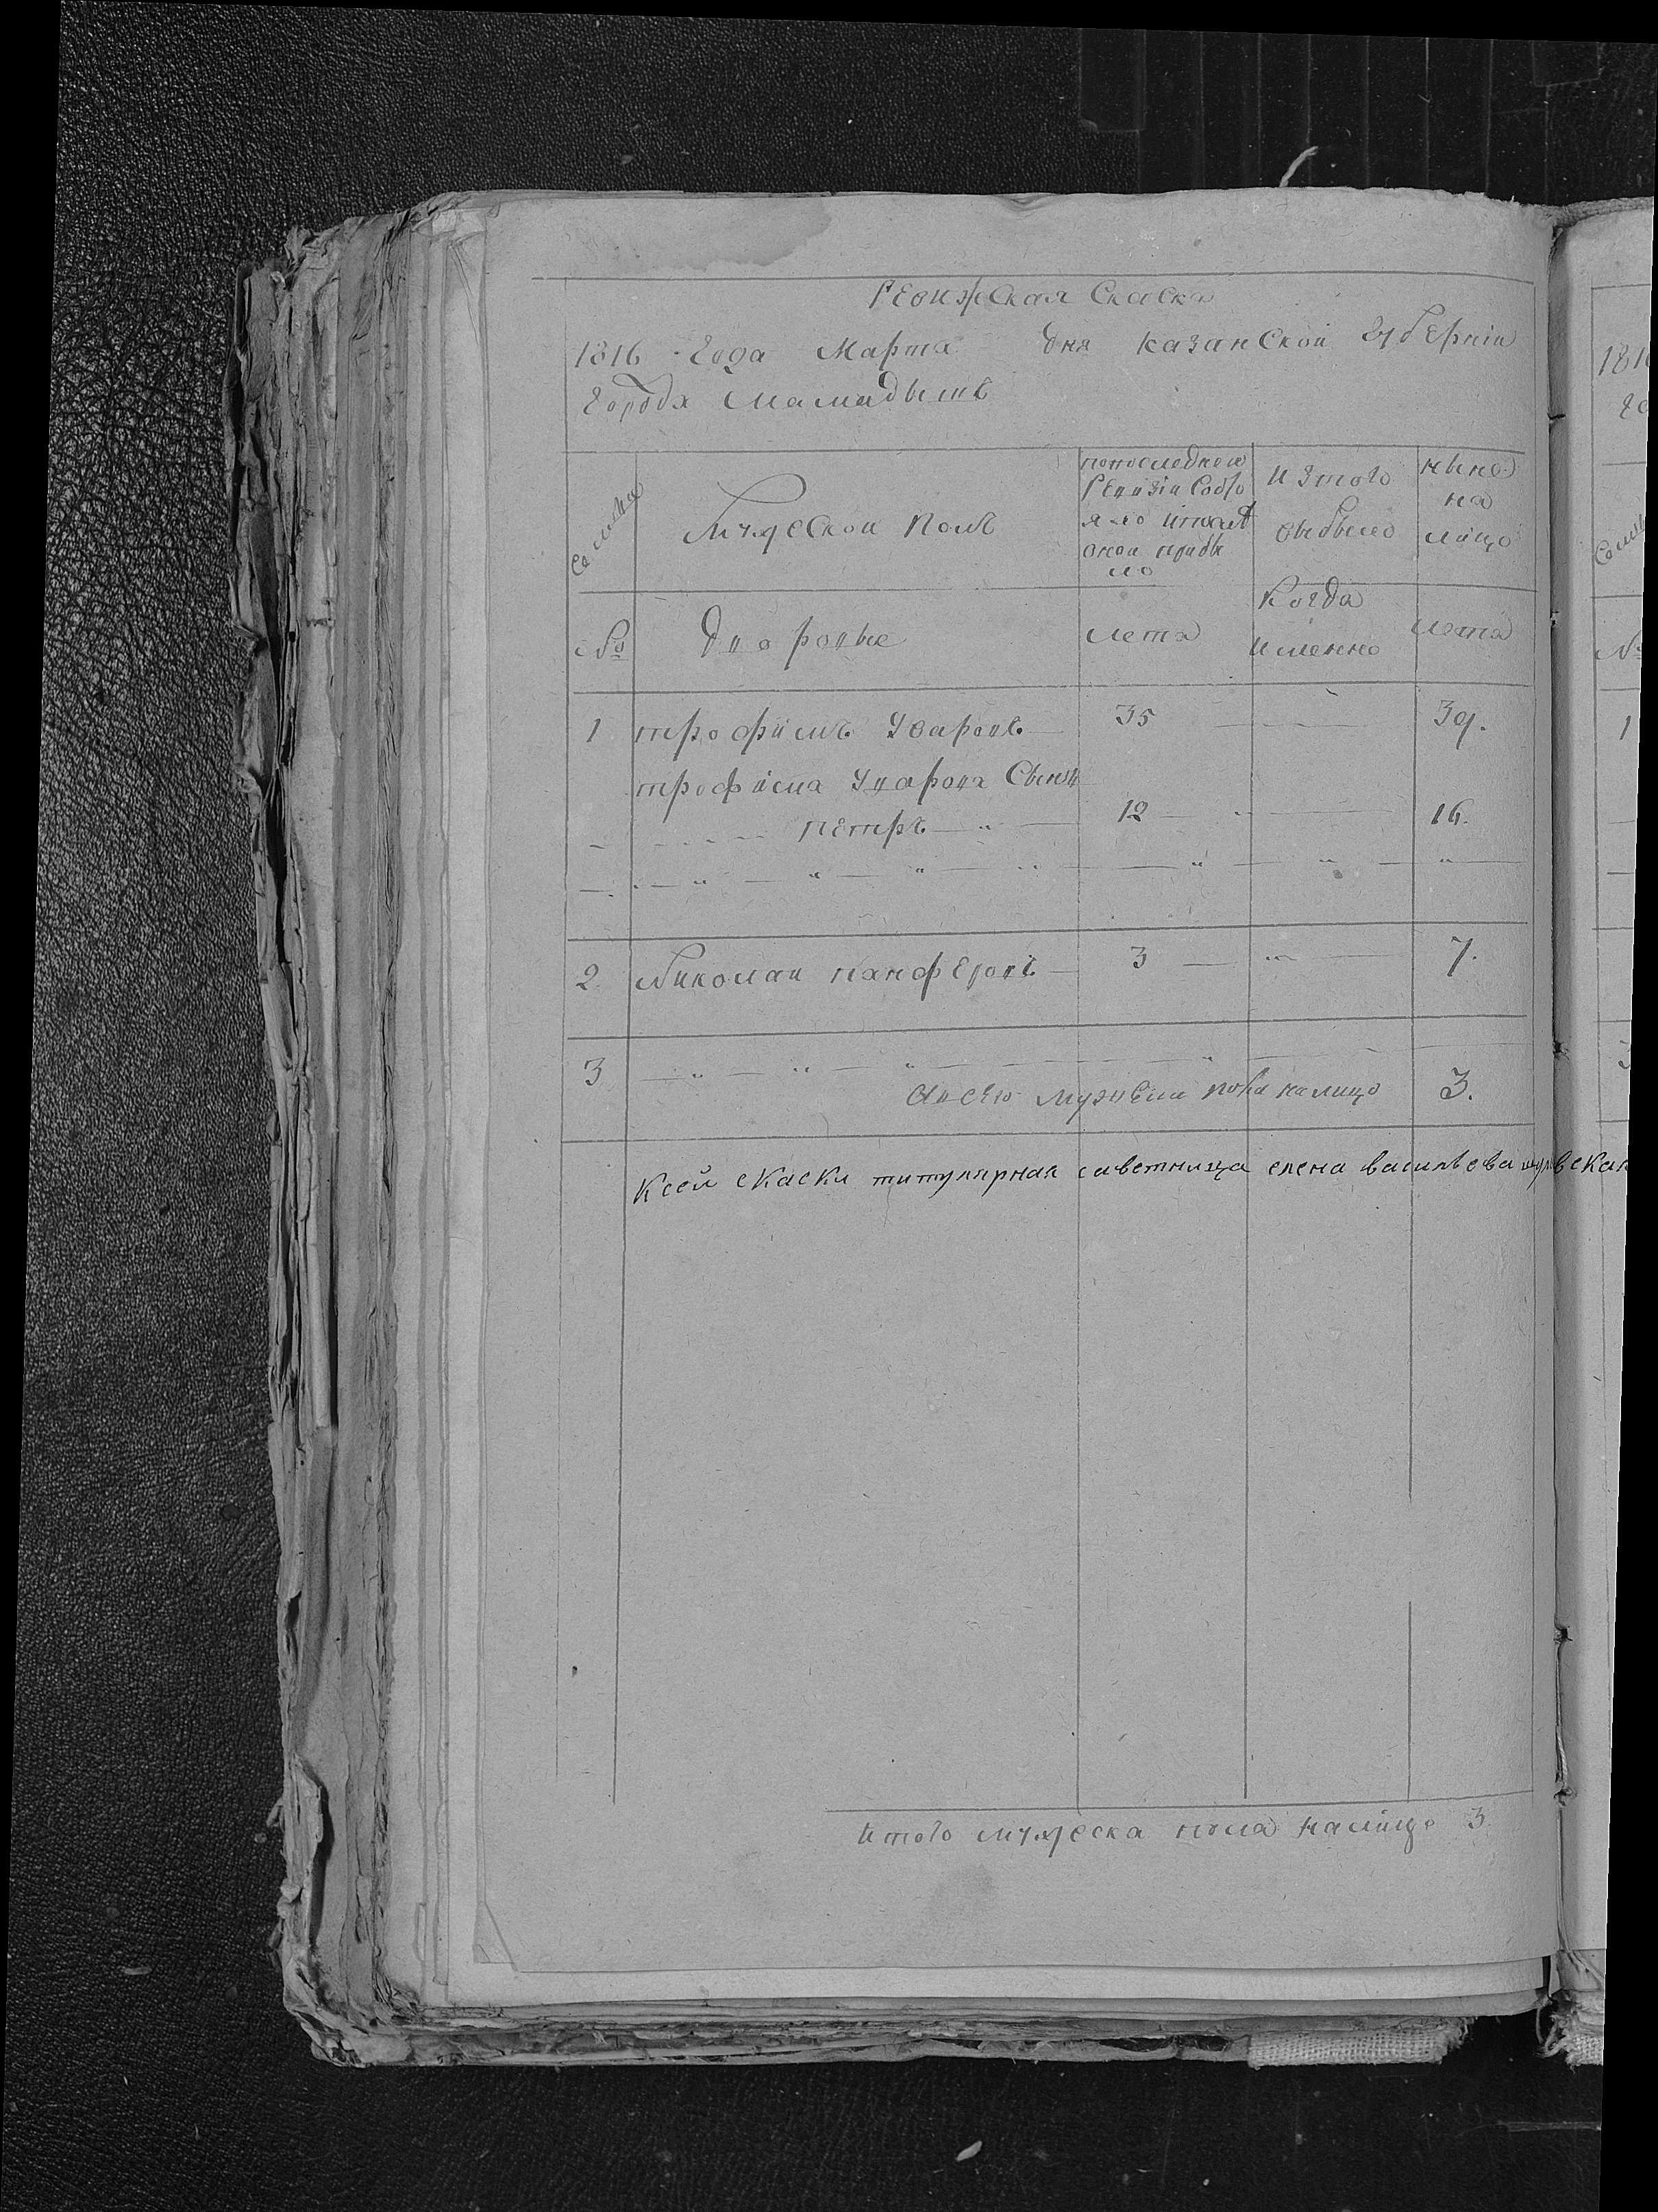 Ревижская Скаска
1816 Года Марта дня казанской Губернiи
Города мамадыша
Семьи
Мужеской полъ
попоследней
Ревизiи состо
яло
оной прибы
ло
изтого
выбыло
ныне
на
лицо
№
Дворовые
лета
Когда
Именно
лета
1 трофимъ Уваровъ 35 39.
трофима Уварова Сынъ
петръ 12 16.
2. Николаи панферовъ 3 7.
3
Всего мужеска пола налицо 3.
ксей скаски титулярная саветница елена васильева
Итого мужеска пола налицо 3
181
го
Семьи
№
1
3